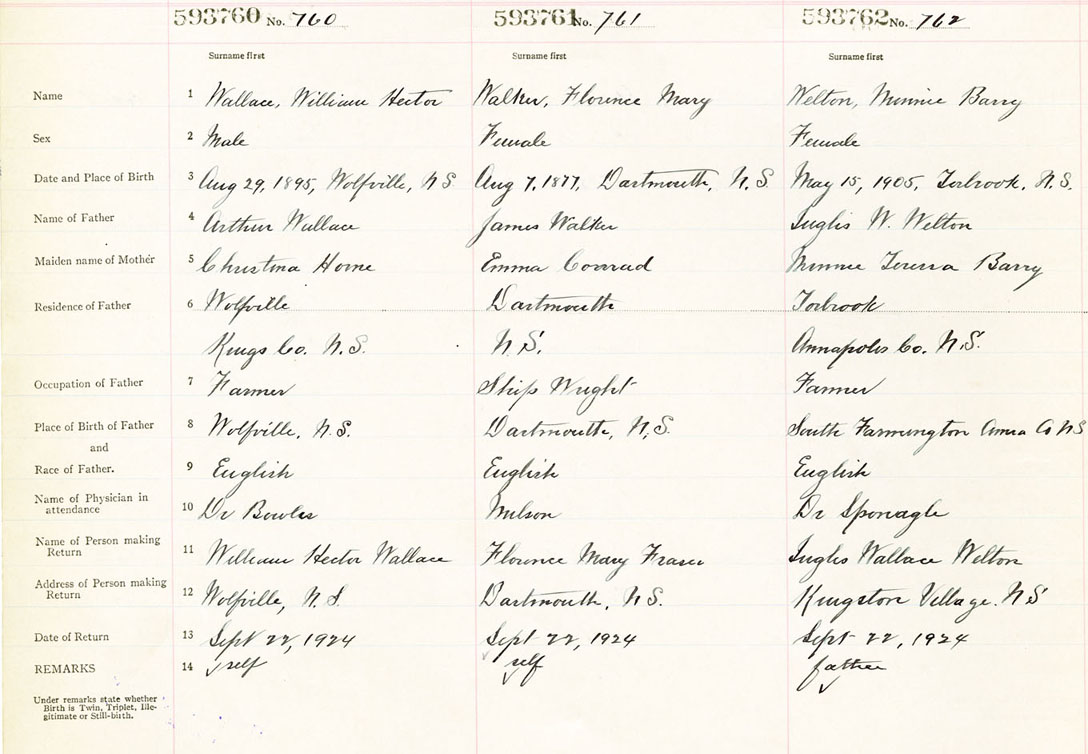 593760 No. 760 593761 No. 761 593762 No. 762
Surname first Surname first Surname first
Name 1 Wallace, William Hector Walker, Florence Mary Welton, Minnie Barry
Sex 2 Male Female Female
Date and Place of Birth 3 Aug 29, 1895, Wolfville, N S. Aug 7, 1877, Dartmouth, N. S. May 15, 1905, Torbrook, N. S.
Name of Father 4 Arthur Wallace James Walker Inglis W. Welton
Maiden name of Mother 5 Christina Horne Emma Conrad Minnie Teressa Barry
Residence of Father 6 Wolfville Dartmouth Torbrook
Kings Co. N.S. N.S. Annapolis Co. N.S.
Occupation of Father 7 Farmer Ship Wright Farmer
Place of Birth of Father 8 Wolfville, N.S. Dartmouth, N.S. South Farmington Anna Co NS
and
Race of Father. 9 English English English
Name of Physician in
attendance 10 Dr Bowles Dr Sponagle
Name of Person making
Return 11 William Hector Wallace Florence Mary Fraser Inglis Wallace Welton
Address of Person making
Return 12 Wolfville, N.S. Dartmouth, N S. Kingston Village. N S
Date of Return 13 Sept 22, 1924 Sept 22, 1924 Sept 22, 1924
REMARKS 14 self self father
Under remarks state whether
Birth is Twin, Triplet, Ille-
gitimate or Still-birth.